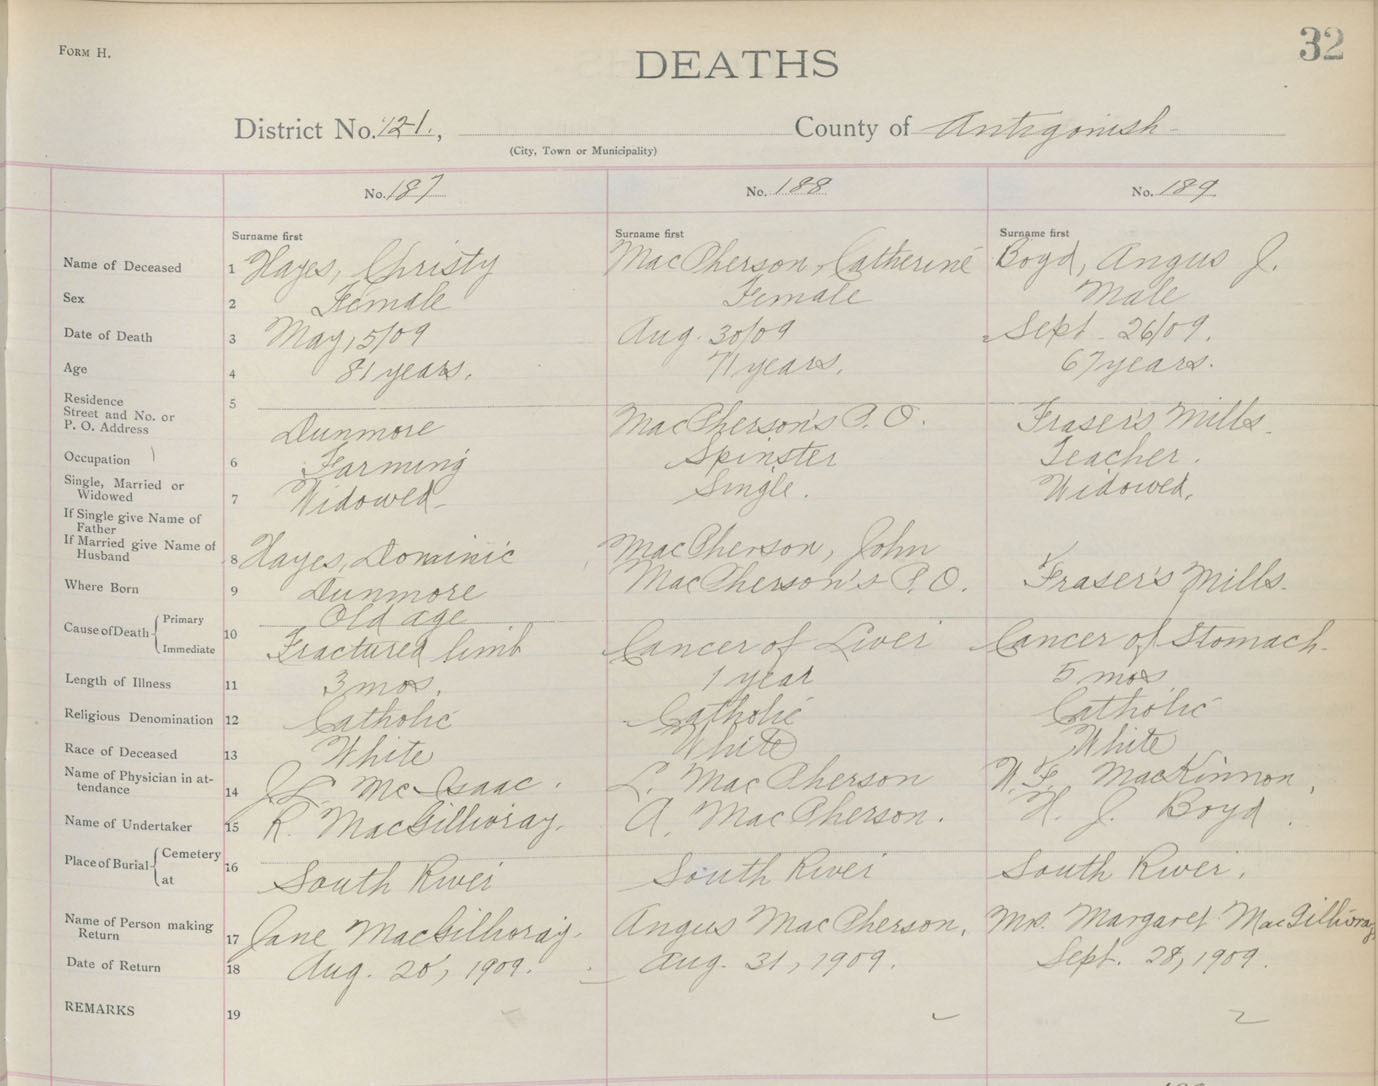 FORM H.
32
DEATHS
District No. 121., County of Antigonish
(City, Town or Municipality)
No. 187 No. 188 No. 189
Surname first Surname first Surname first
Name of Deceased 1 Hayes, Christy MacPherson, Catherine Boyd, Angus J.
Sex 2 Female Female Male
Date of Death 3 May, 15/09 Aug. 30/09 Sept. 26/09.
Age 4 81 years. 71 years. 67 years.
Residence 5
Street and No. or
P. O. Address Dunmore MacPherson's P.O. Fraser's Mills.
Occupation 6 Farming Spinster Teacher.
Single, Married or
Widowed 7 Widowed Single. Widowed.
If Single give Name of
Father
If Married give Name of
Husband 8 Hayes, Dominic MacPherson, John
Where Born 9 Dunmore MacPherson's P.O. Fraser's Mills.
Cause of Death Primary 10 Old age
Immediate Fractured limb Cancer of Liver Cancer of Stomach.
Length of Illness 11 3 mos. 1 year 5 mos
Religious Denomination 12 Catholic Catholic Catholic
Race of Deceased 13 White White White
Name of Physician in at-
tendance 14 McIsaac. L. MacPherson W. F. MacKinnon,
Name of Undertaker 15 R. MacGillivray. A. MacPherson. H. J. Boyd.
Place of Burial Cemetery 16
at South River South River South River.
Name of Person making
Return 17 Jane MacGillivray. Angus MacPherson. Mrs. Margaret MacGillivray
Date of Return 18 Aug. 20, 1909. Aug. 31, 1909. Sept. 28, 1909.
REMARKS 19